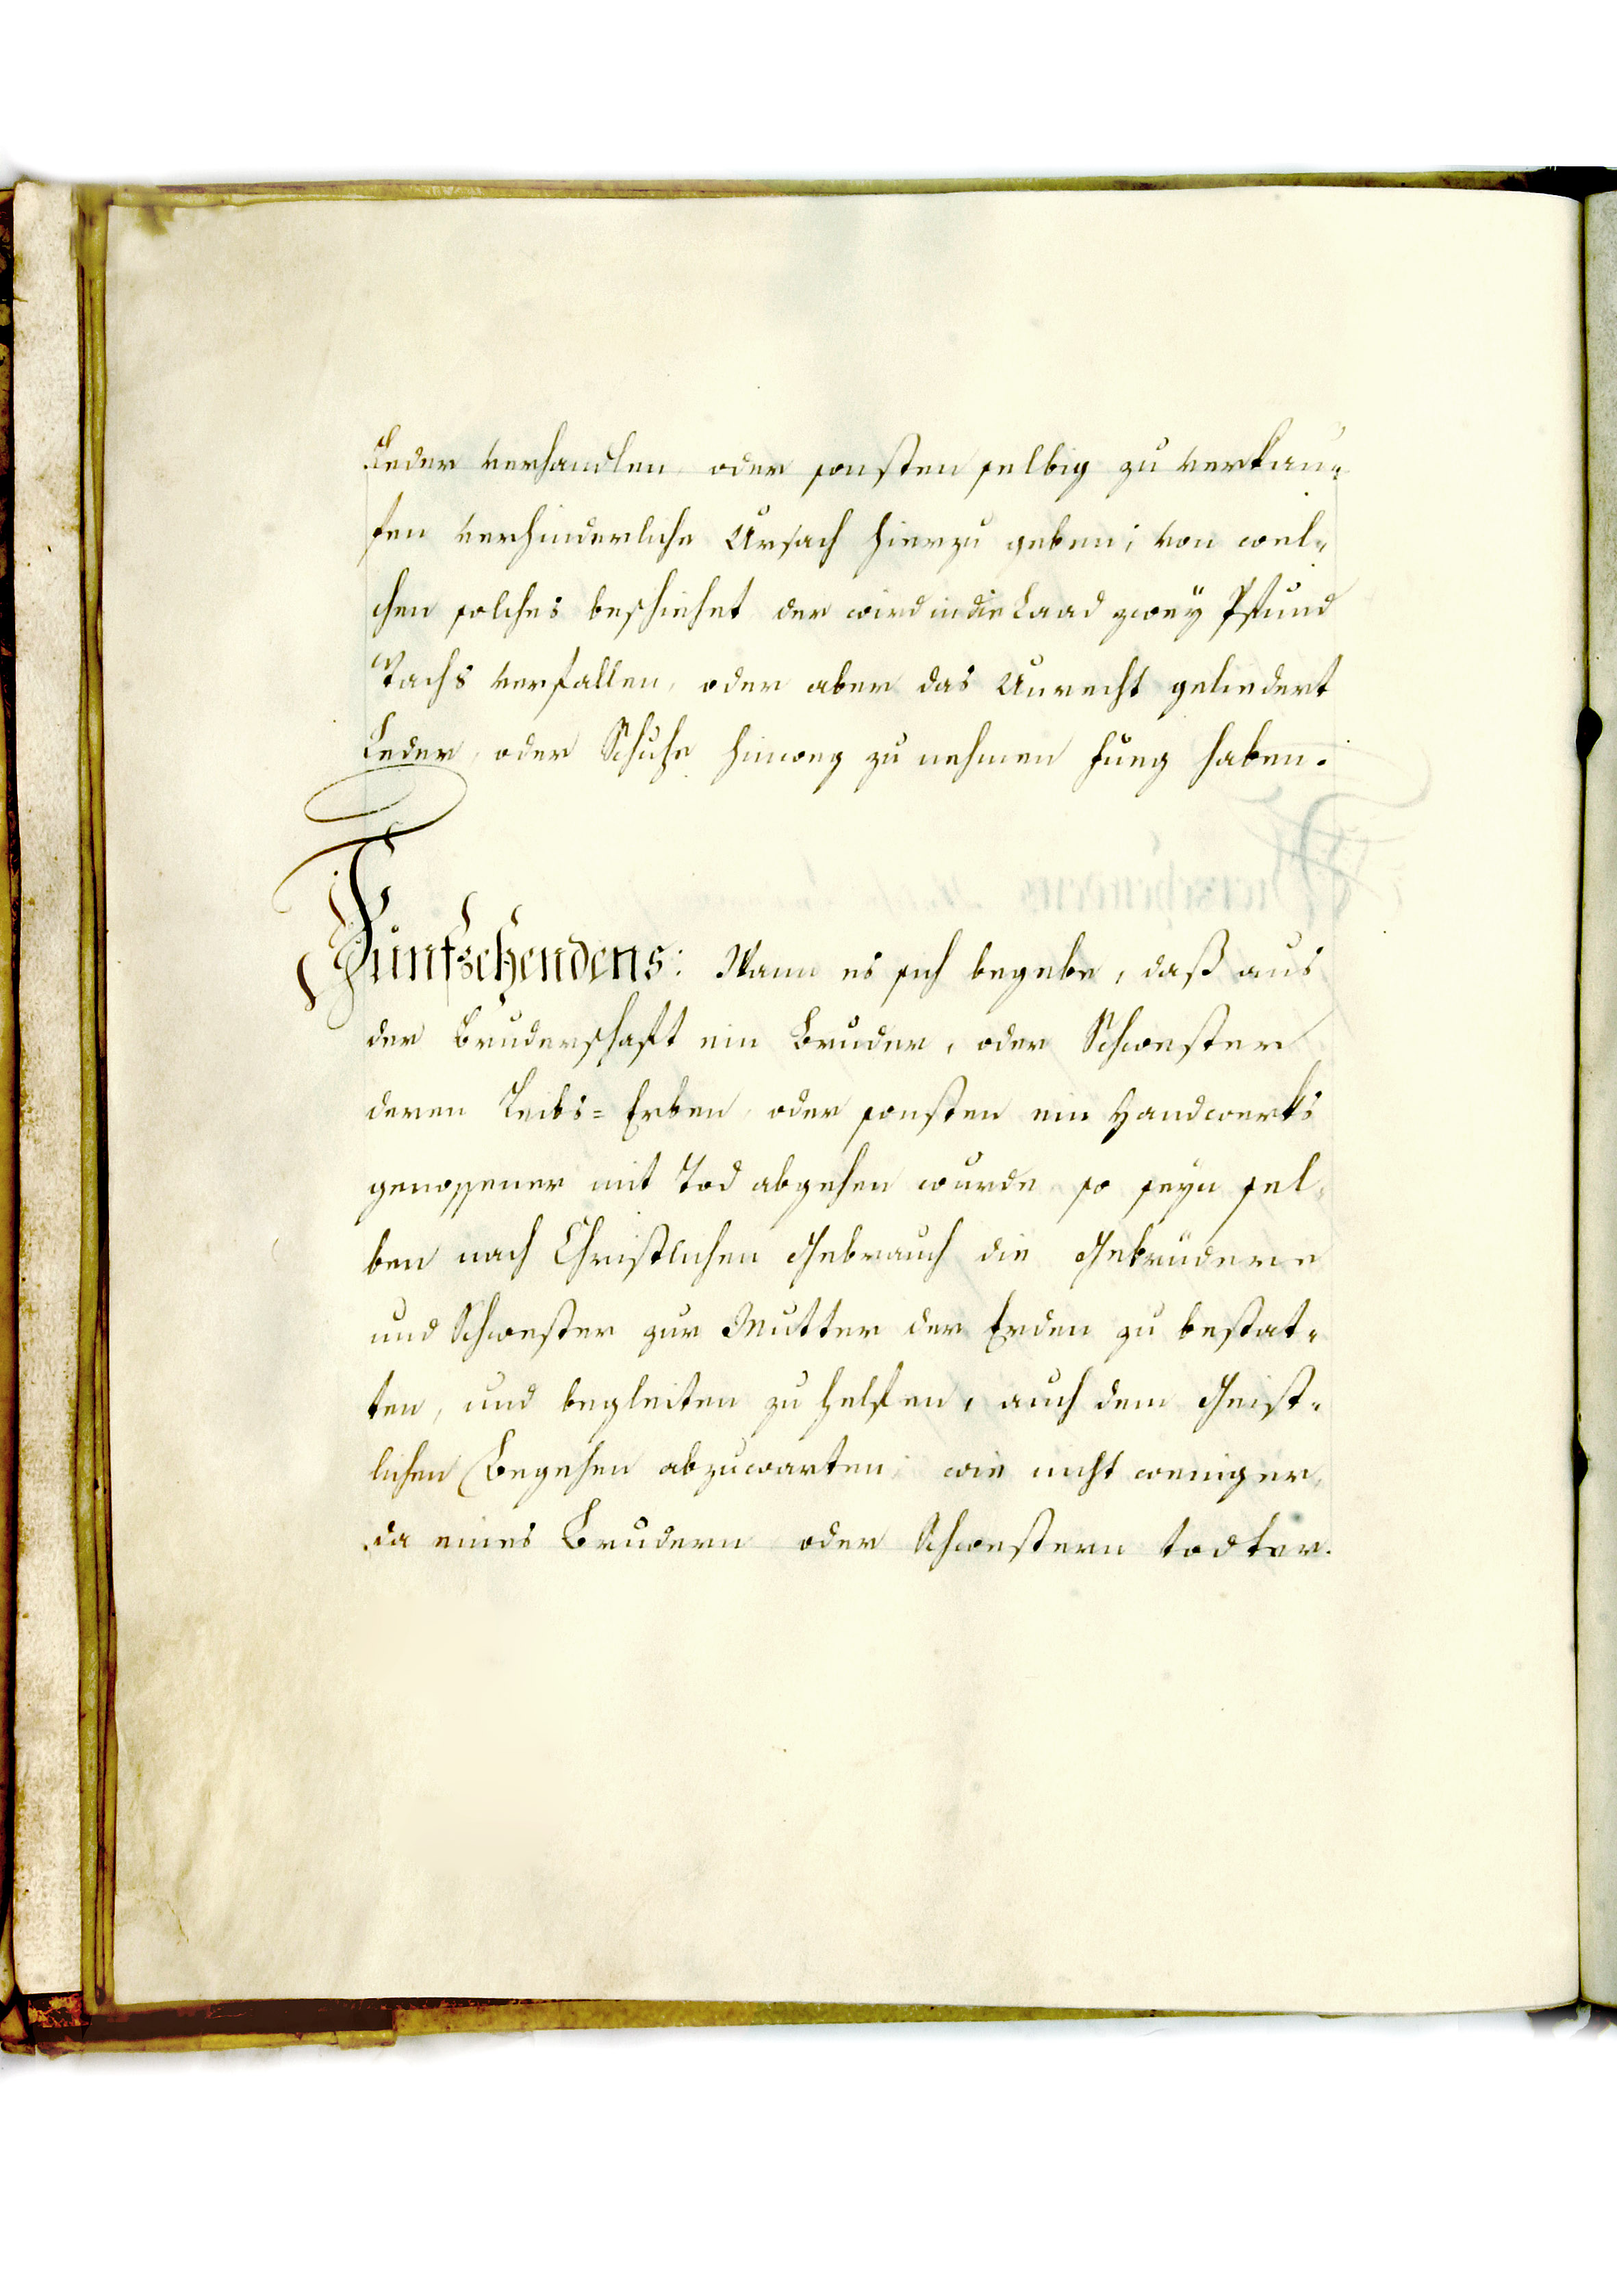 Leder verhandlen oder sonsten selbig zu verkau-
fen verhinderliche Ursach hierzu geben; von wel-
chen solches beschiehet der wird in die Laad zwey Pfund
Wachs verfallen, oder aber das Unrecht geliedert
Leder, oder Schuhe hinweg zu nehmen fueg haben.
Fünfzehendens: Wann es sich begebe, daß aus
der Bruderschaft ein Bruder, oder Schwester
deren Leibs=Erben oder sonsten ein Handwerks
genossener mit Tod abgehen wurde so seyn sel-
ben nach Christlichen Gebrauch die Gebrüdere
und Schwester zur Mutter der Erden zu bestat-
ten, und begleiten zu helfen, auch dem Geist-
lichen Begehen abzuwarten; wie nicht weniger
da eines Brudern oder Schwestern todter.